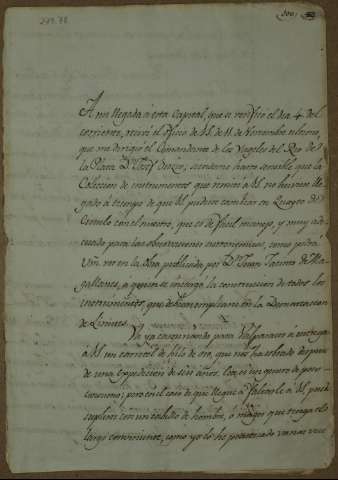 A mi llegada a esta Capital, que se verificó el dia 4. del
corriente, recivi el oficio de V.S. de 11 de Noviembre ultimo,
que me dirigió el Comandante de los Vageles del Rio de
la Plata Dn. Josef siendome harto sensible que la
Coleccion de instrumentos que remití a V.S. no huviese lle-
gado a tiempo de que V.S. pudiera cambiar su Quarto de
Circulo con el nuestro, que es de facil manejo, y muy ade-
cuado para las observaciones astronomicas, como podra
Vm. ver en la Obra publicada por Dn. Juan Jacinto de Ma-
gallanes, a quien se encargó la construccion de todos los
instrumentos que debian emplearse en la Demarcacion
de Limites.
Va ya caminando para Valparaiso a entregar
a V.S. un carretel de hilo de oro, que nos ha sobrado despues
de una expedicion de seis años. Con el un quarto de
pero en el caso de que llegue a faltarle a V.S. puede
suplirse con un cabello de hombre, ó muger que tenga el
largo conveniente, como yo lo he practicado varias veces